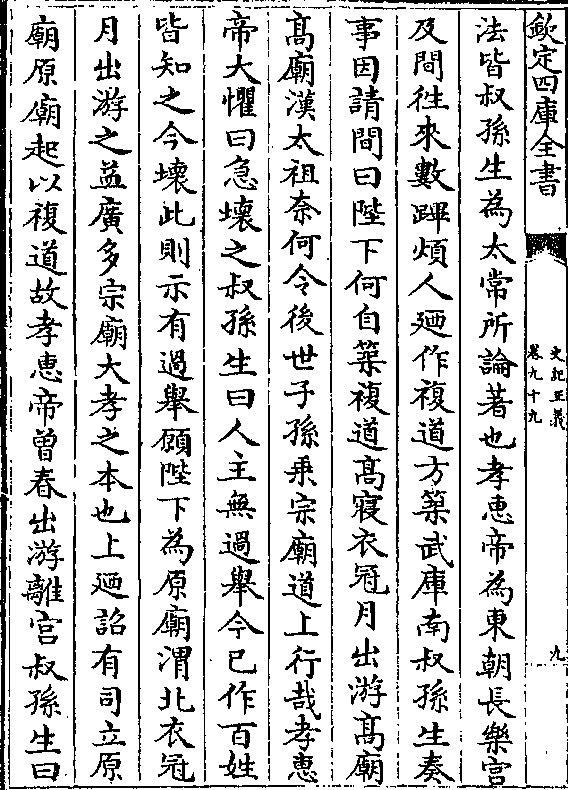 欽定四庫全書
史記正義
卷九十九
九
法皆叔孫生為太常所論著也孝惠帝為東朝長樂宮
及間徃來數蹕煩人廼作複道方築武庫南叔孫生奏
事因請間曰陛下何自築複道髙寢衣冠月出游髙廟
髙廟漢太祖奈何令後世子孫乗宗廟道上行哉孝惠
帝大懼曰急壞之叔孫生曰人主無過舉今已作百姓
皆知之今壞此則示有過舉願陛下為原廟渭北衣冠
月出游之益廣多宗廟大孝之本也上廼詔有司立原
廟原廟起以複道故孝惠帝曽春出游離宮叔孫生曰